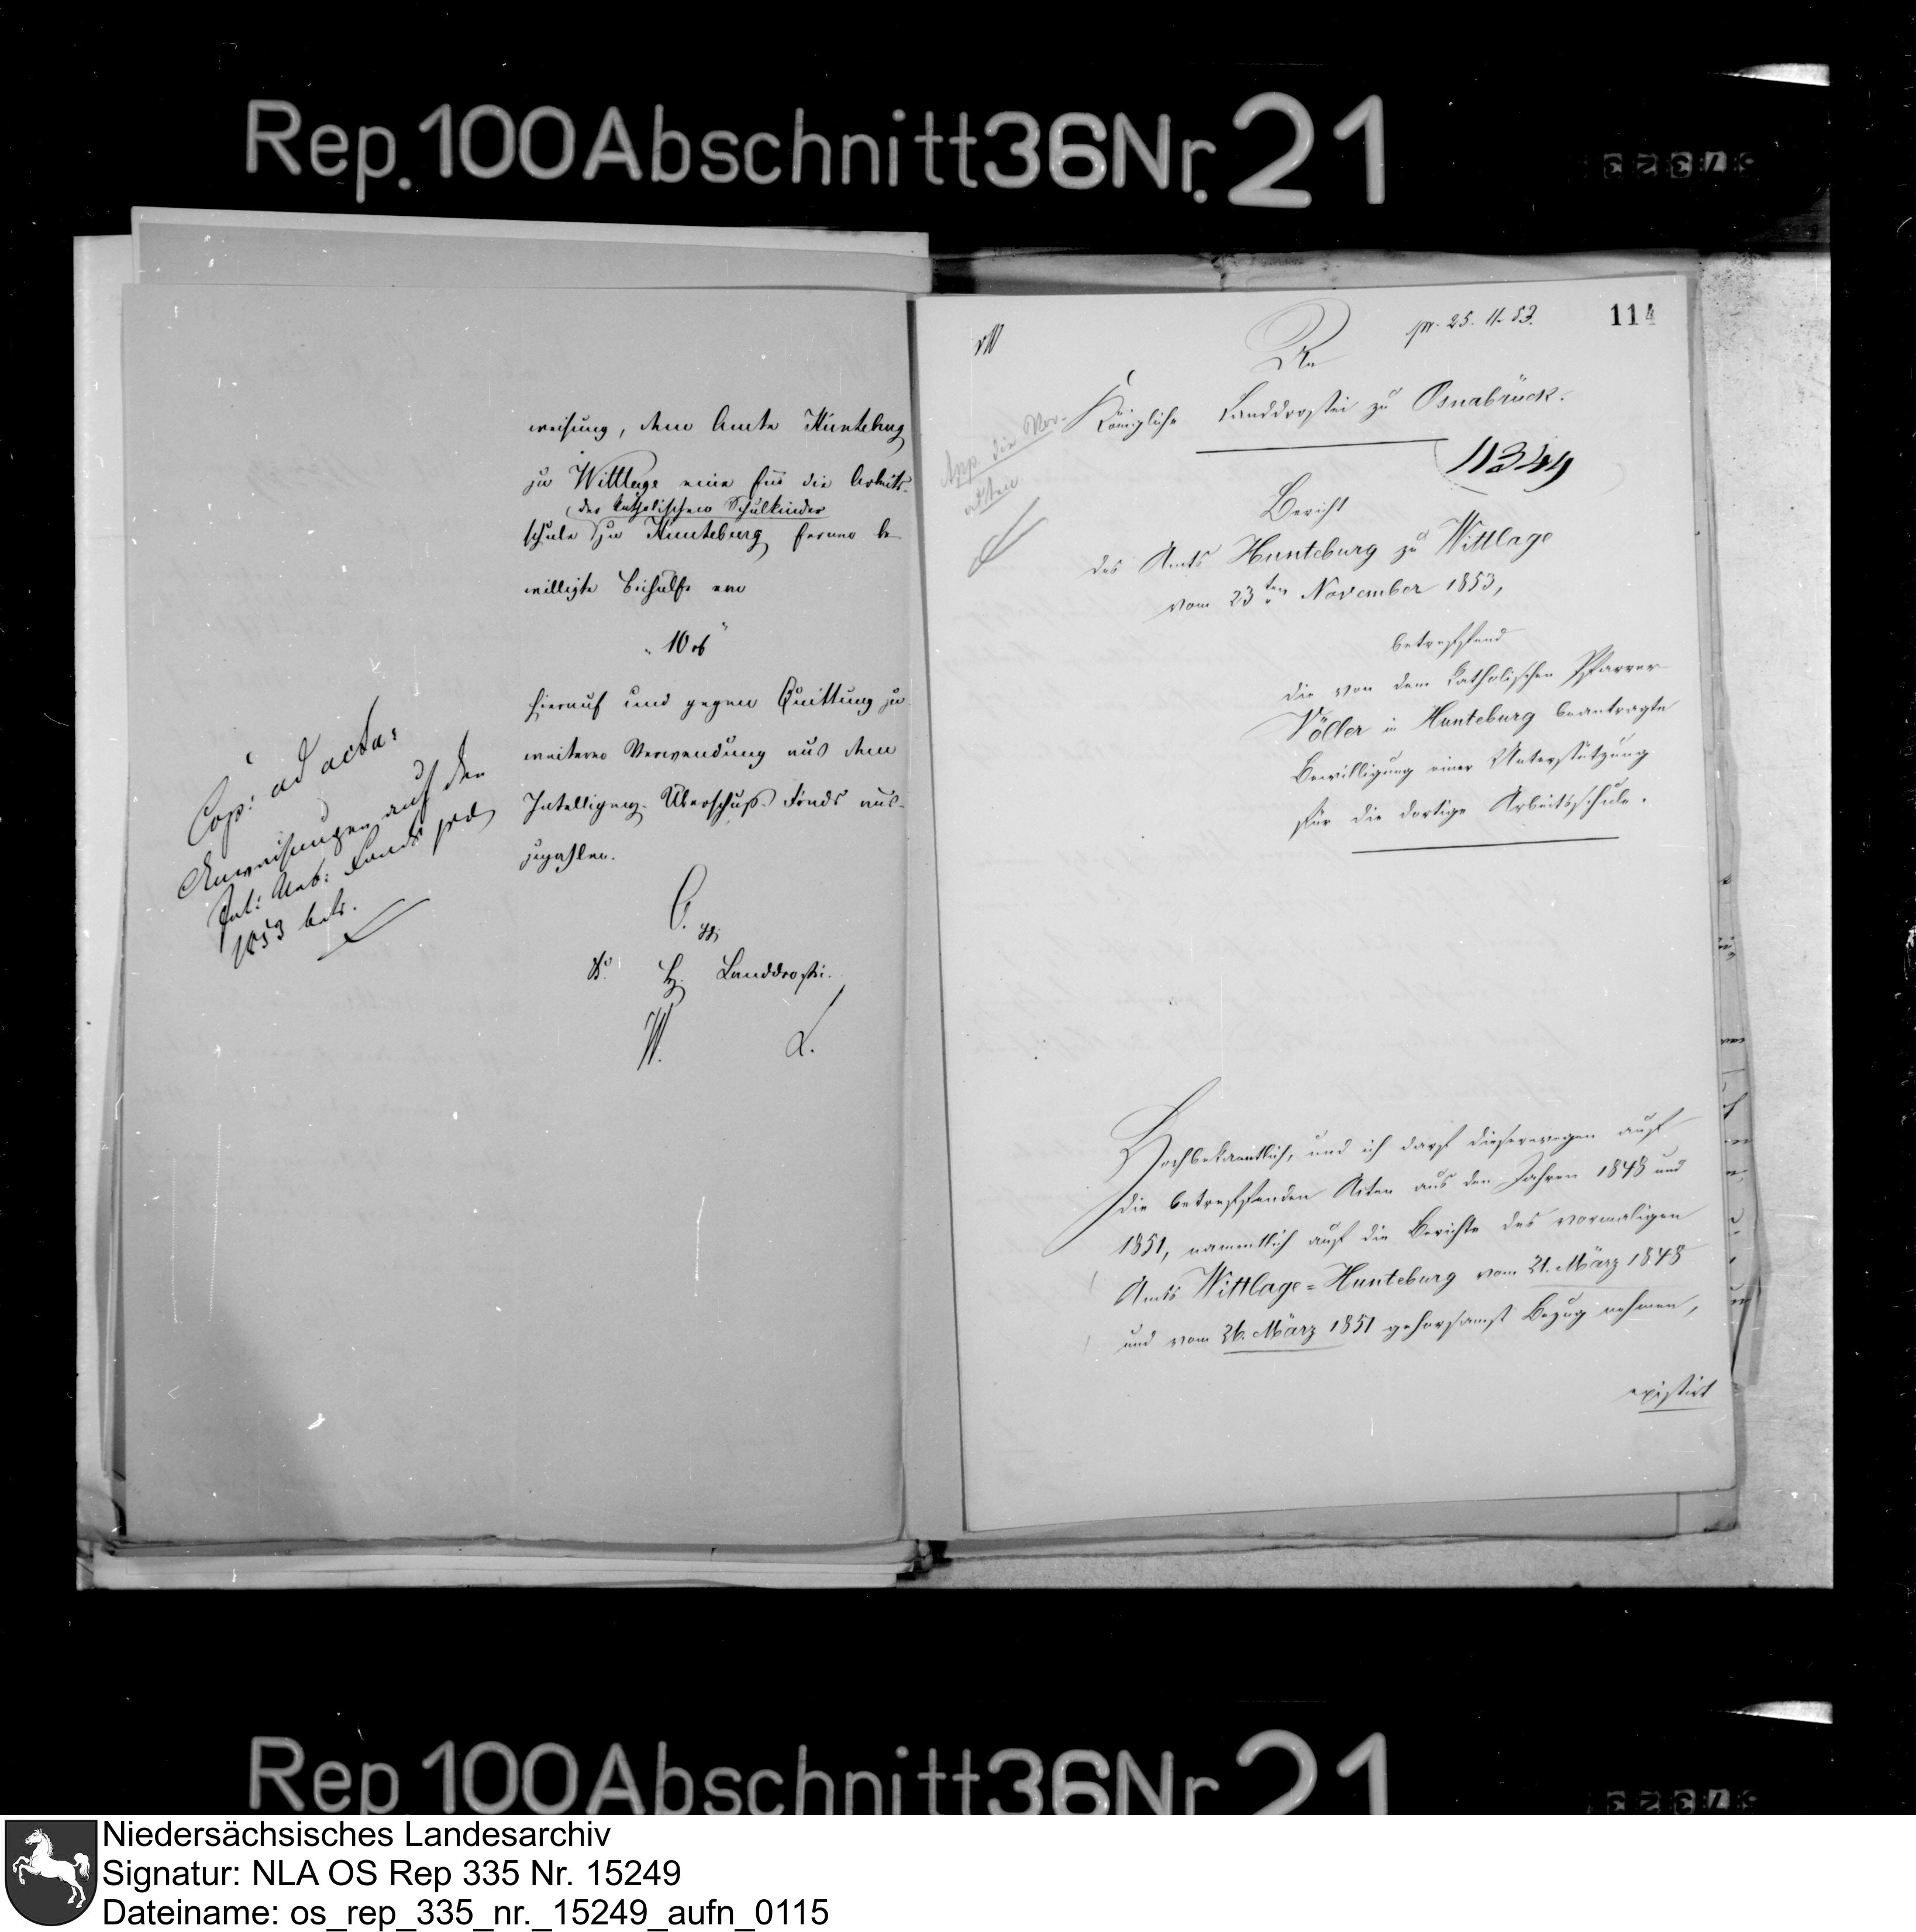 Rep. 100 Abschnitt 36 Nr. 21
weisung, dem Amte Hunteburg
zu Wittlage eine für die Arbeits-
der katholischen Schulkinder
schule zu Hunteburg ferner be
willigte Beihülfe von
10 rℓ
hierauf und gegen Quittung zu
weiterer Verwendung aus dem
Intelligenz-Überschuß-Fonds aus-
zuzahlen.
O.
K. H. Landdrostei.
W. L.
Cop: ad acta:
Anweisungen auf den
Int: Ueb: Fonds pro
1853 betr.
114
pr. 25. 11. 53.
An
Königliche Landdrostei zu Osnabrück.
11344
App. die Vor-
acten
Bericht
des Amts Hunteburg zu Wittlage
vom 23ten November 1853,
betreffend
die von dem katholischen Pfarrer
Völler in Hunteburg beantragte
Bewilligung einer Unterstützung
für die dortige Arbeitsschule.
Hochbekanntlich, und ich darf dieserwegen auf
die betreffenden Acten aus den Jahren 1848 und
1851, namentlich auf die Berichte des vormaligen
Amts Wittlage=Hunteburg vom 21. März 1848
und vom 26. März 1851 gehorsamst Bezug nehmen,
existirt
Rep 100 Abschnitt 36 Nr 21
Niedersächsisches Landesarchiv
Signatur: NLA OS Rep 335 Nr. 15249
Dateiname: os_rep_335_nr._15249_aufn_0115